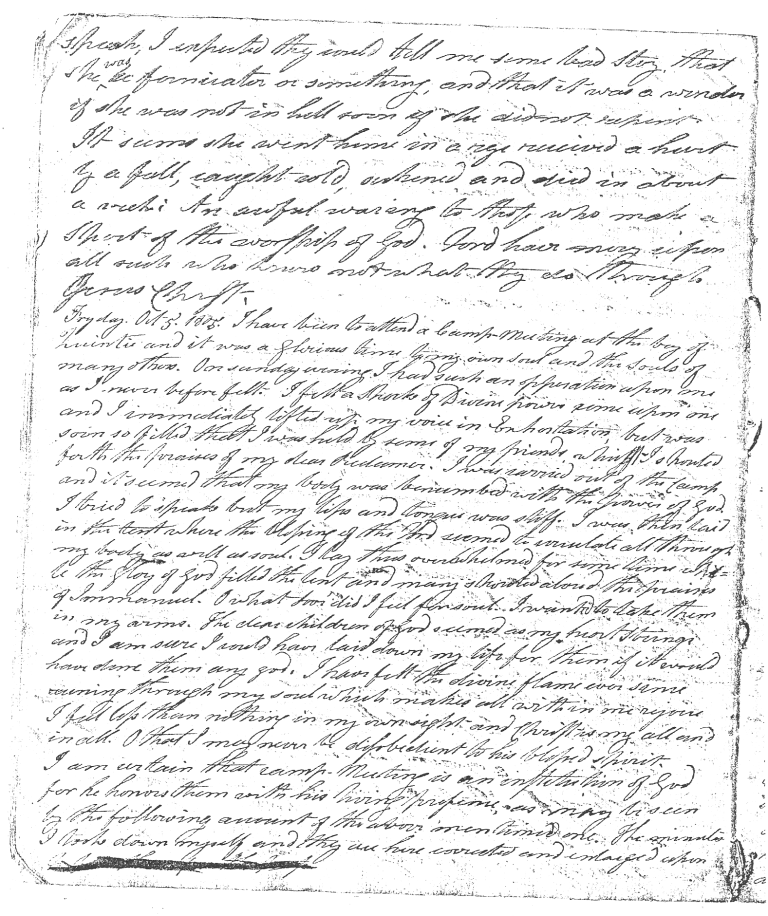 speach, I expected they would tell me some bad story, that
she was a fornicator or something, and that it was a wonder
if she was not in hell soon if she did not repent.
It seems she went home in a rage received a hurt
by a fall, caught cold, sickened and died in about
a week: An awful waring to those who make a
Sport of the worship of God. Lord have mercy upon
all such who know not what they do through
Jesus Christ.
Fryday. Oct 5. I have been to attend a Camp-Meeting at the bay of
and it was a Glorious time to my own soul and the souls of
many others. On sunday evening I had such an opperation upon me
as I never before felt. I felt a Shock of Divine power come upon me
and I immediately lifted up my voice in Exhortation, but was
soon so filled that I was held by some of my friends, whilst I shouted
forth the praises of my dear Redeemer. I was carried out of the camp
and it seemed that my body was benumbed with the power of God
I tried to speake but my lips and tongue was stiff. I was then laid
in the tent where the blessing of the Lord seemed to circulate all through
my body as well as soul. I lay thus overwhelmed for some time whi=
le the Glory of God filled the tent and many shouted aloud the praises
of Immanuel. O what love did I feel for souls. I wanted to take them
in my arms. The dear children of God seemed as my heart strings
and I am sure I would have laid down my life for them if it would
have done them any good. I have felt the divine flame ever since
runing through my soul which makes all within me rejoice
I feel less than nothing in my own sight and Christ is my all and
in all. O that I may never be disobedient to his blessed spirit.
I am certain that camp-Meeting is an institution of God
for he honors them with his living presence, as may be seen
by the following account of the above mentioned one. The minutes
I took down myself and they are here corrected and enlarged upon